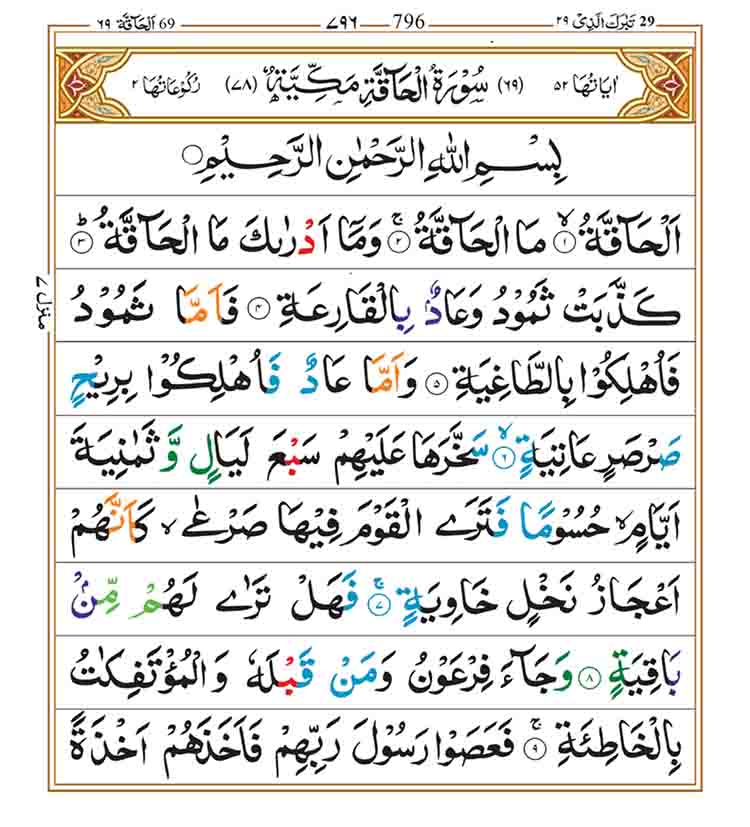 29 تَبٰرَكَ الَّذِیْ ۲۹ 796 ۷۹۶ 69 اَلْحَآقَّة ۶۹
اٰیَاتُهَا ۵۲ (۶۹) سُوْرَةُ الْحَآقَّةِ مَكِّیَّةٌ (۷۸) رُكُوْعَاتُهَا ۲
بِسْمِ اللّٰهِ الرَّحْمٰنِ الرَّحِیْمِ
اَلْحَآقَّةُۙ۱ مَا الْحَآقَّةُۚ۲ وَمَاۤ اَدْرٰىكَ مَا الْحَآقَّةُؕ۳
كَذَّبَتْ ثَمُوْدُ وَعَادٌۢ بِالْقَارِعَةِ۴ فَاَمَّا ثَمُوْدُ
فَاُهْلِكُوْا بِالطَّاغِیَةِ۵ وَاَمَّا عَادٌ فَاُهْلِكُوْا بِرِیْحٍ
صَرْصَرٍ عَاتِیَةٍۙ۶ سَخَّرَهَا عَلَیْهِمْ سَبْعَ لَیَالٍ وَّثَمٰنِیَةَ
اَیَّامٍۙ حُسُوْمًا فَتَرَی الْقَوْمَ فِیْهَا صَرْعٰیۙ كَاَنَّهُمْ
اَعْجَازُ نَخْلٍ خَاوِیَةٍۚ۷ فَهَلْ تَرٰی لَهُمْ مِّنْۢ
بَاقِیَةٍ۸ وَجَآءَ فِرْعَوْنُ وَمَنْ قَبْلَهٗ وَالْمُؤْتَفِكٰتُ
بِالْخَاطِئَةِۚ۹ فَعَصَوْا رَسُوْلَ رَبِّهِمْ فَاَخَذَهُمْ اَخْذَةً
منزل ۷